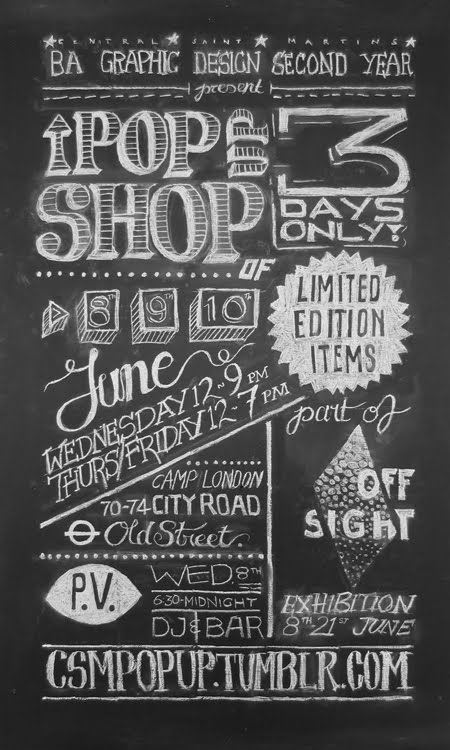 CENTRAL SAINT MARTINS
BA GRAPHIC DESIGN SECOND YEAR
present
POP UP
SHOP
3
DAYS
ONLY!
OF
LIMITED
EDITION
ITEMS
8TH 9TH 10TH
June
WEDNESDAY 12~9 PM
THURS/FRIDAY 12~7 PM
part of
OFF
SIGHT
CAMP/LONDON
70-74 CITY ROAD
Old Street.
P.V.
WED. 8TH
6:30-MIDNIGHT
DJ & BAR
EXHIBITION
8TH 21ST JUNE
CSMPOPUP.TUMBLR.COM